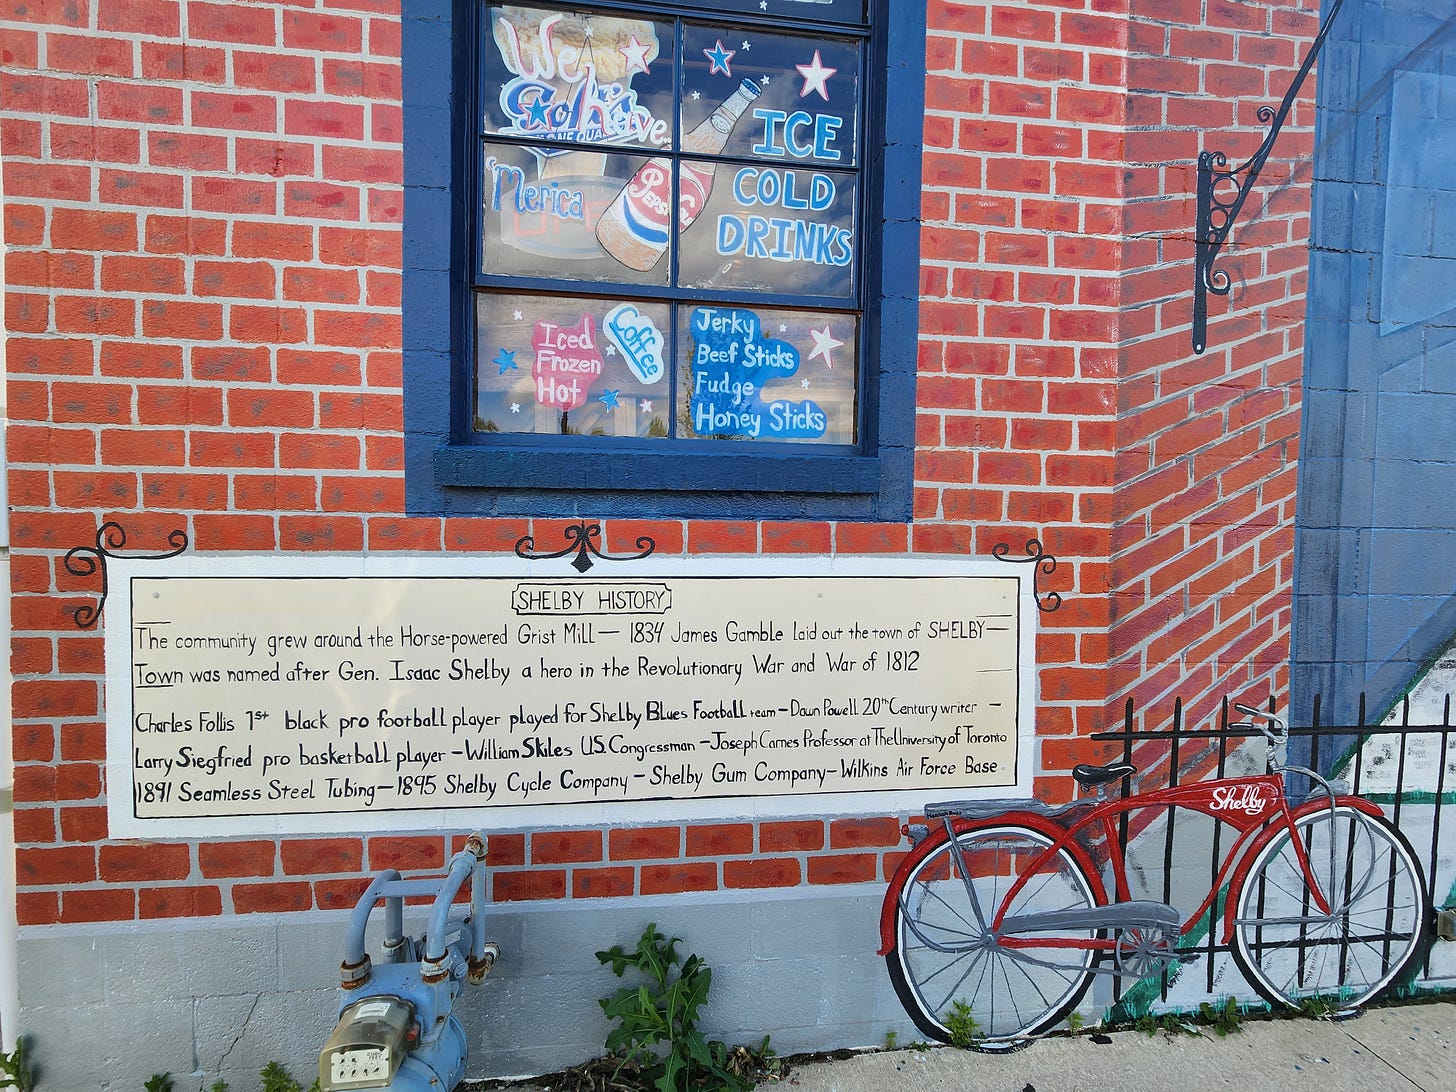 We
Have
ONE QUA
'Merica
PEPSI
ICE
COLD
DRINKS
Iced
Frozen
Hot
Coffee
Jerky
Beef Sticks
Fudge
Honey Sticks
SHELBY HISTORY
The community grew around the Horse-powered Grist Mill— 1834 James Gamble laid out the town of SHELBY—
Town was named after Gen. Isaac Shelby a hero in the Revolutionary War and War of 1812
Charles Follis 1st black pro football player played for Shelby Blues Football team — Dawn Powell 20th Century writer —
Larry Siegfried pro basketball player — William Skiles U.S. Congressman — Joseph Carnes Professor at The University of Toronto
1891 Seamless Steel Tubing — 1895 Shelby Cycle Company — Shelby Gum Company — Wilkins Air Force Base
Shelby